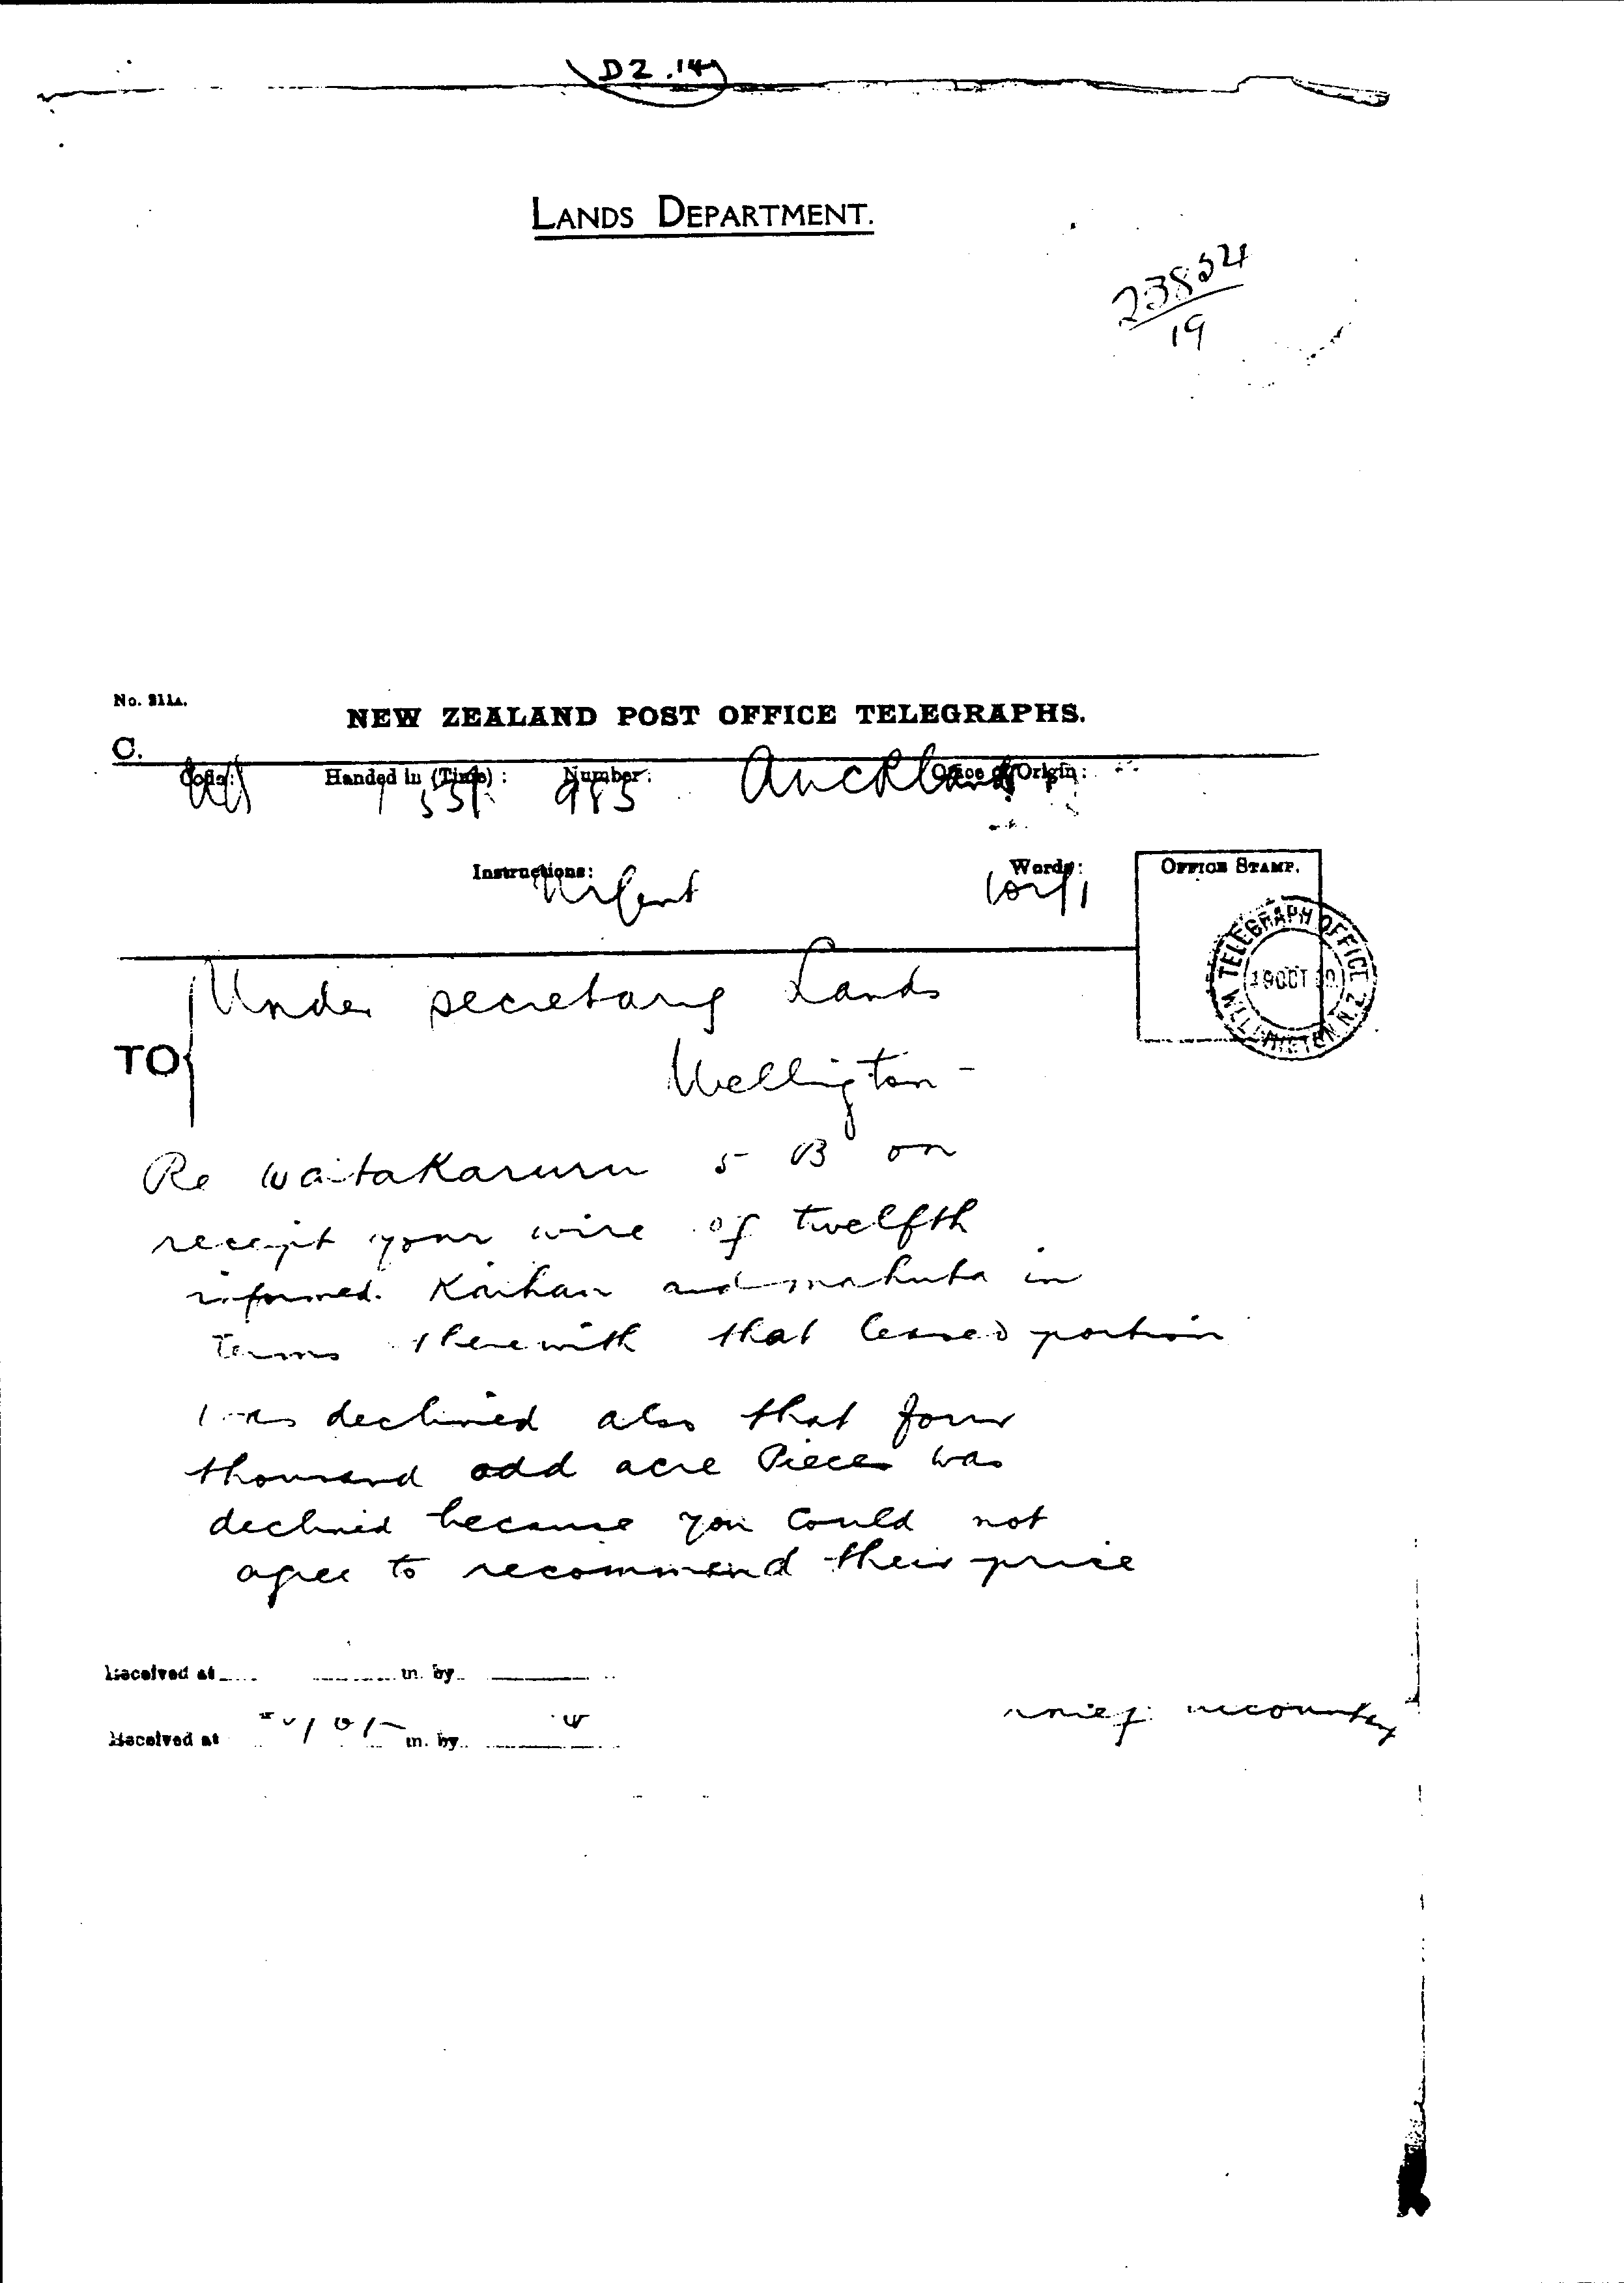 D2.14
LANDS DEPARTMENT.
23854
19
No. 211A.
NEW ZEALAND POST OFFICE TELEGRAPHS.
C.
Code: Handed in (Time): Number: Office of Origin:
985 Auckland
Instructions: Words: OFFICE STAMP.
Urgent
TELEGRAPH OFFICE
19 OCT
WELLINGTON N.Z.
Under secretary Lands
TO
Wellington -
Re Waitakaruru 5 B on
receipt your wire of twelfth
informed and mahuta in
Terms therewith that leased portion
was declined also that four
thousand odd acre Piece was
declined because you could not
agree to recommend their price
Received at m. by
Received at m. by